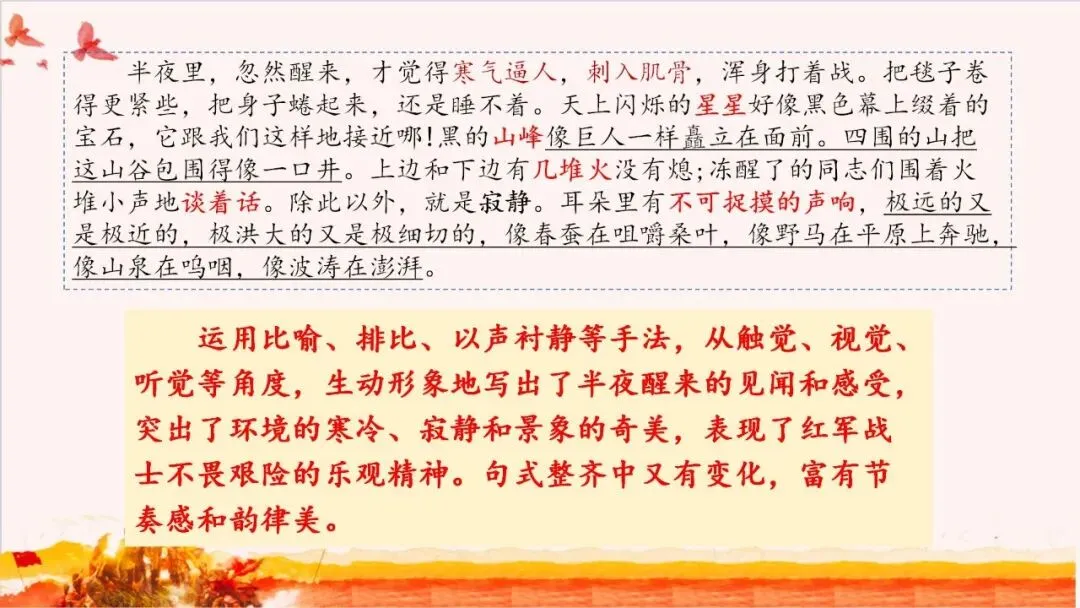 半夜里，忽然醒来，才觉得寒气逼人，刺入肌骨，浑身打着战。把毯子卷
得更紧些，把身子蜷起来，还是睡不着。天上闪烁的星星好像黑色幕上缀着的
宝石，它跟我们这样地接近哪!黑的山峰像巨人一样矗立在面前。四围的山把
这山谷包围得像一口井。上边和下边有几堆火没有熄;冻醒了的同志们围着火
堆小声地谈着话。除此以外，就是寂静。耳朵里有不可捉摸的声响，极远的又
是极近的，极洪大的又是极细切的，像春蚕在咀嚼桑叶，像野马在平原上奔驰，
像山泉在呜咽，像波涛在澎湃。
运用比喻、排比、以声衬静等手法，从触觉、视觉、
听觉等角度，生动形象地写出了半夜醒来的见闻和感受，
突出了环境的寒冷、寂静和景象的奇美，表现了红军战
士不畏艰险的乐观精神。句式整齐中又有变化，富有节
奏感和韵律美。